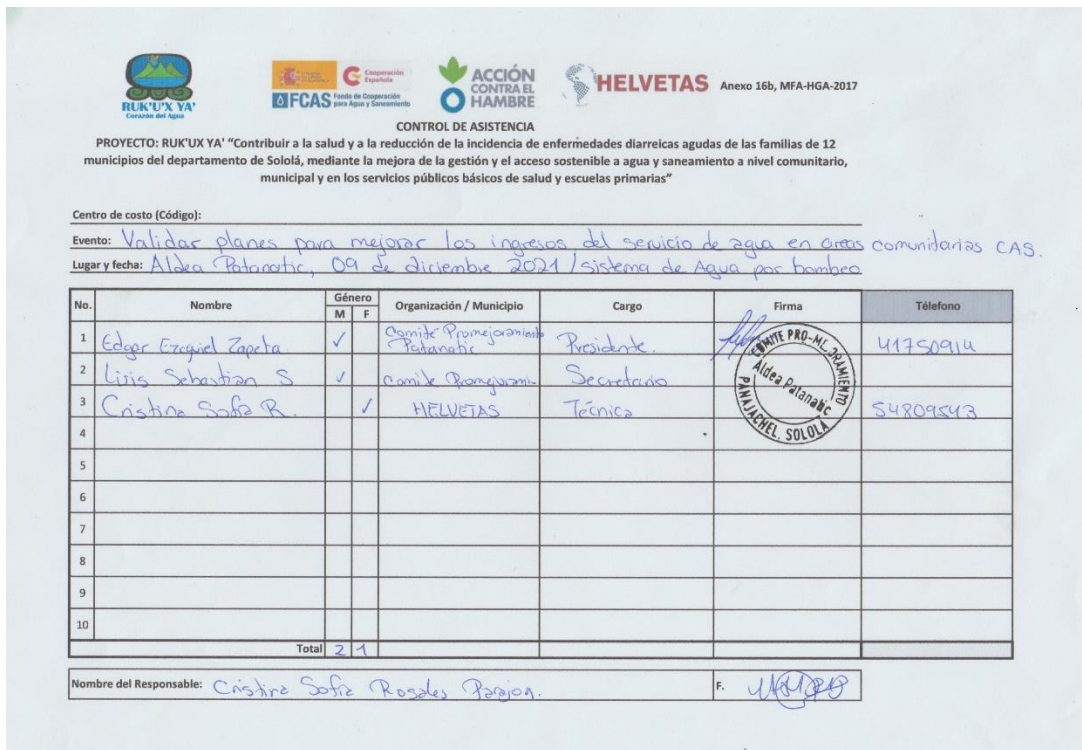 RUK'U'X YA'
Corazón del Agua
Cooperación Española
FCAS Fondo de Cooperación para Agua y Saneamiento
ACCIÓN CONTRA EL HAMBRE
HELVETAS
Anexo 16b, MFA-HGA-2017
CONTROL DE ASISTENCIA
PROYECTO: RUK'UX YA' “Contribuir a la salud y a la reducción de la incidencia de enfermedades diarreicas agudas de las familias de 12
municipios del departamento de Sololá, mediante la mejora de la gestión y el acceso sostenible a agua y saneamiento a nivel comunitario,
municipal y en los servicios públicos básicos de salud y escuelas primarias”
Centro de costo (Código):
Evento: Validar planes para mejorar los ingresos del servicio de agua en areas comunitarias CAS.
Lugar y fecha: Aldea Patanatic, 09 de diciembre 2021 / sistema de Agua por bombeo
No. Nombre Género M F Organización / Municipio Cargo Firma Télefono
1 Edgar Ezequiel Zapeta ✓ Comité Promejoramiento Patanatic Presidente. 41750914
2 Luis Sebastian S ✓ Comite Promejorami Secretario
3 Cristina Sofia R. ✓ HELVETAS Técnica 54809543
COMITE PRO-MEJORAMIENTO
Aldea Patanatic
PANAJACHEL, SOLOLA
4
5
6
7
8
9
10
Total 2 1
Nombre del Responsable: Cristina Sofia Rosales Parajon. F.